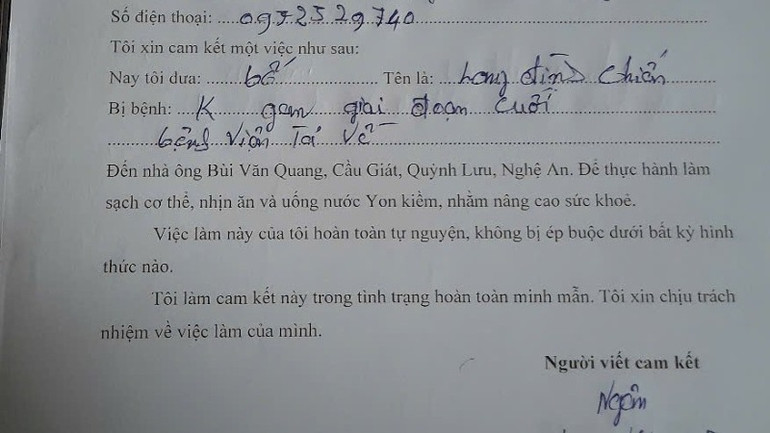 Số điện thoại: 0972529740
Tôi xin cam kết một việc như sau:
Nay tôi đưa: bố Tên là: Hoàng đình chiến
Bị bệnh: K gan giai đoạn cuối
bệnh viện Trả về
Đến nhà ông Bùi Văn Quang, Cầu Giát, Quỳnh Lưu, Nghệ An. Để thực hành làm
sạch cơ thể, nhịn ăn và uống nước Yon kiềm, nhằm nâng cao sức khoẻ.
Việc làm này của tôi hoàn toàn tự nguyện, không bị ép buộc dưới bất kỳ hình
thức nào.
Tôi làm cam kết này trong tình trạng hoàn toàn minh mẫn. Tôi xin chịu trách
nhiệm về việc làm của mình.
Người viết cam kết
Ngân